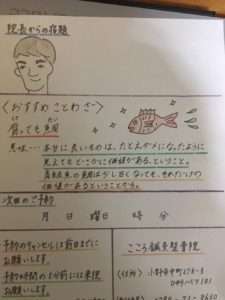 院長からの宿題
〈おすすめことわざ〉
くさ たい
腐っても鯛
意味…本当に良いものは、たとえダメになったように
見えてもどこかに価値がある、ということ。
高級魚の鯛は少し古くなっても、それだけの
価値があるということから。
次回のご予約
月 日 曜日 時 分
予約のキャンセルは前日までに
お願いします。
予約時間の5分前には来院
お願いします。
こころ鍼灸整骨院
(住所) 小野市中町278-3